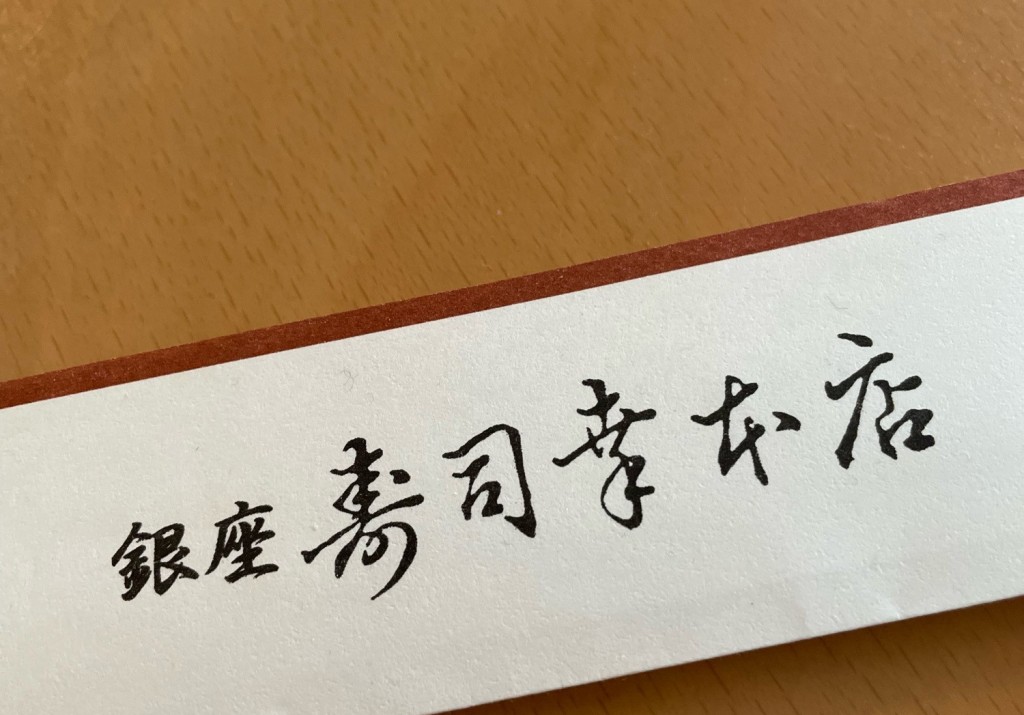 銀座 寿司幸本店